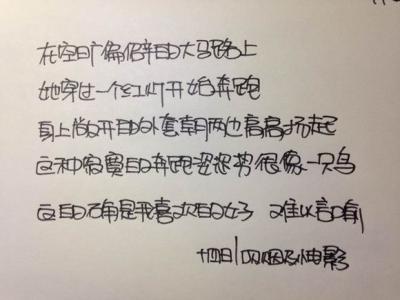 在空旷偏僻的大马路上
她穿过一个红灯开始奔跑
身上敞开的外套朝两边高高扬起
这种寂寞的奔跑姿势很像一只鸟
这的确是我喜欢的女子 难以言喻